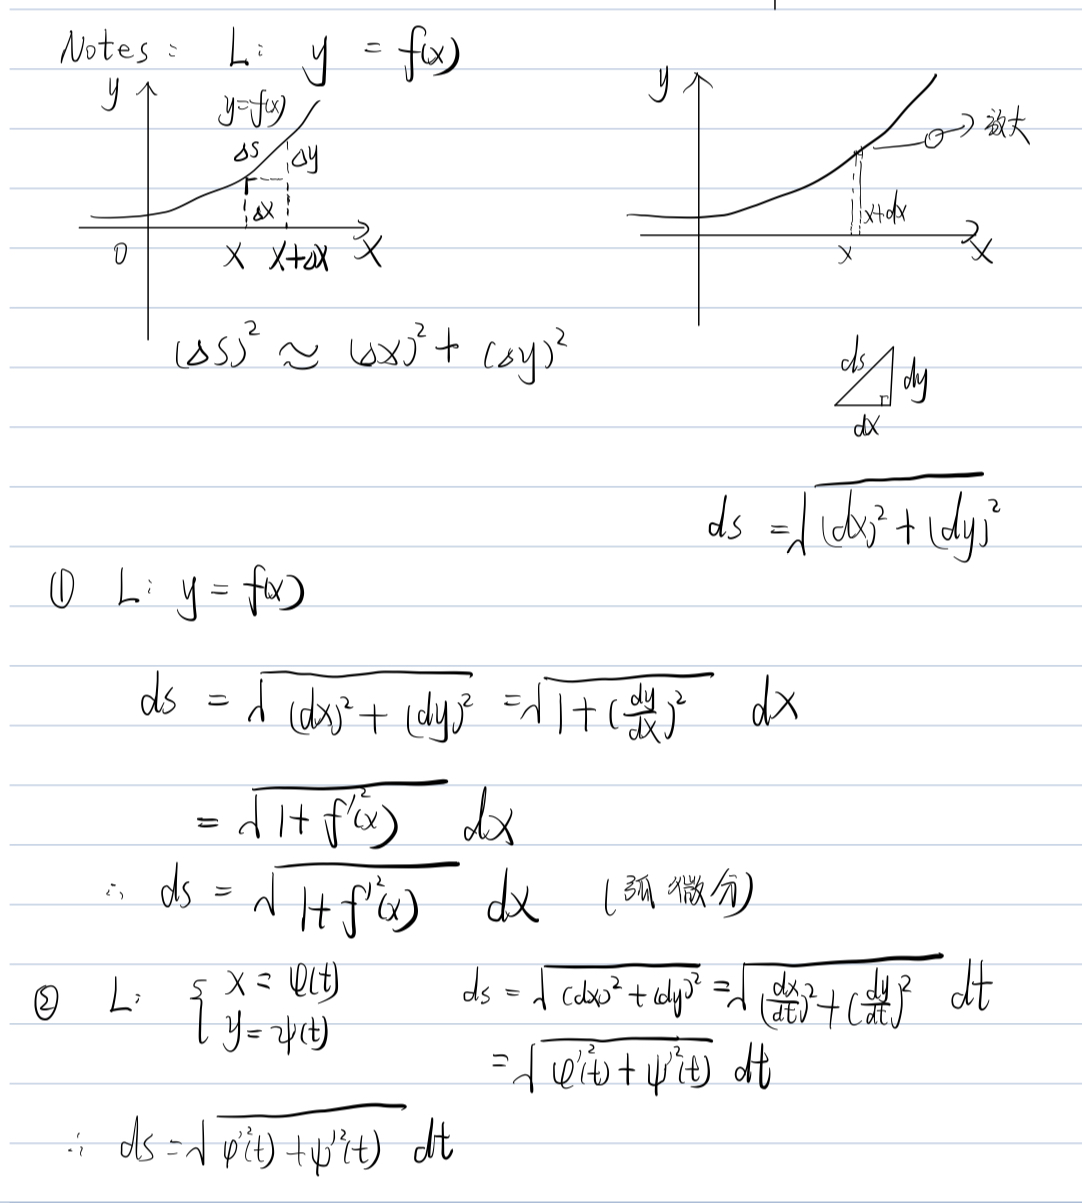 Notes: L: y = f(x)
y
y=f(x)
Δs
Δy
Δx
0
x
x+Δx
x
y
放大
x+dx
x
x
(Δs)² ≈ (Δx)² + (Δy)²
ds
dy
dx
ds = √((dx)² + (dy)²)
① L: y = f(x)
ds = √((dx)² + (dy)²) = √(1+(dy/dx)²) dx
= √(1+f'²(x)) dx
∴ ds = √(1+f'²(x)) dx (弧微分)
② L: { x = φ(t) ds = √((dx)² + (dy)²) = √((dx/dt)² + (dy/dt)²) dt
y = ψ(t)
= √(φ'²(t) + ψ'²(t)) dt
∴ ds = √(φ'²(t) + ψ'²(t)) dt